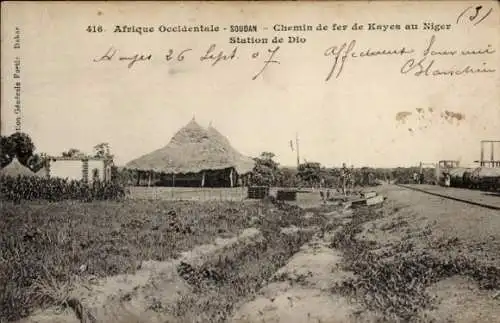 416. Afrique Occidentale - SOUDAN - Chemin de fer de Kayes au Niger
Station de Dio
(3)
Kayes 26 Sept 07
Affectueux Souvenir
Blanchin
Collection Générale Fortier Dakar